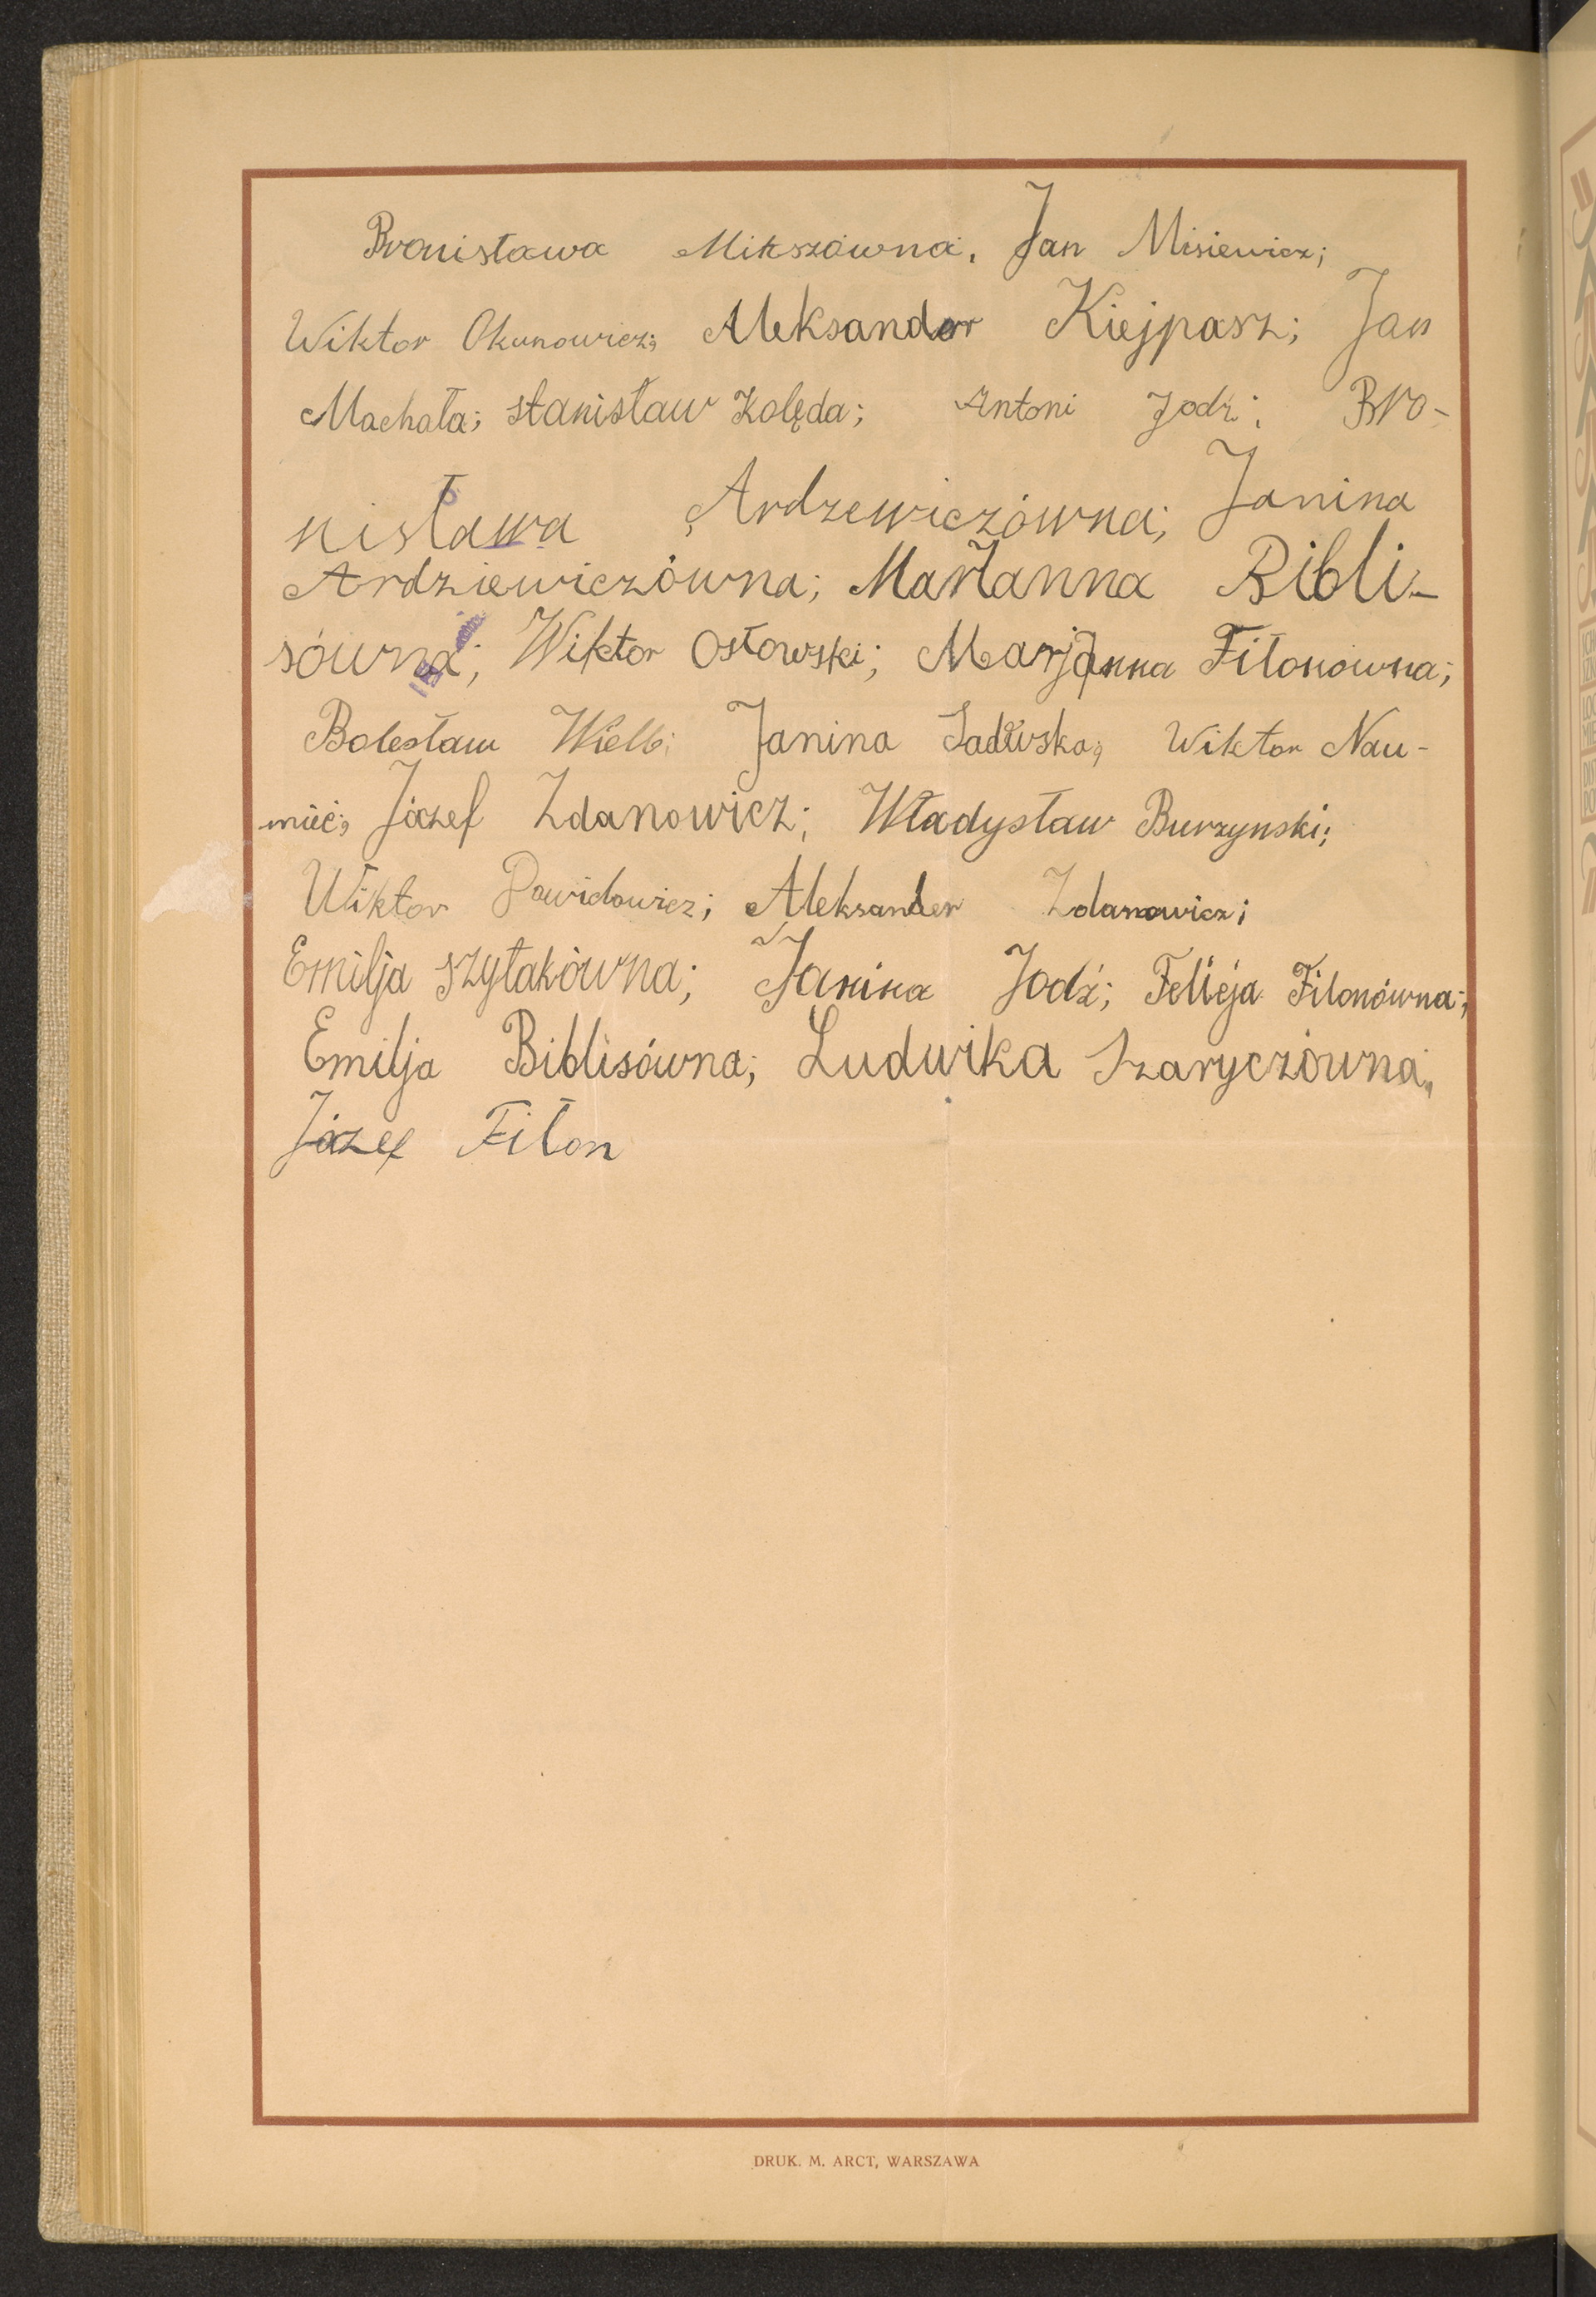 Bronisława Mikszówna, Jan Misiewicz;
Wiktor Okunowicz; Aleksander Kiejpasz; Jan
Machała; stanisław Kolęda; Antoni Jodź; Bro-
nisława Ardzewiczówna; Janina
Ardziewiczówna; Marianna Bibli-
sówna; Wiktor Osłowski; Marjanna Filonówna;
Bolesław Wielb; Janina Wiktor Nau-
mić; Józef Zdanowicz; Władysław Burzynski;
Wiktor Dawidowicz; Aleksander Zdanowicz;
Emilja szyłakówna; Janina Jodź; Felicja Filonówna;
Emilja Biblisówna; Ludwika Szaryczówna,
Józef Fiłon
DRUK. M. ARCT, WARSZAWA